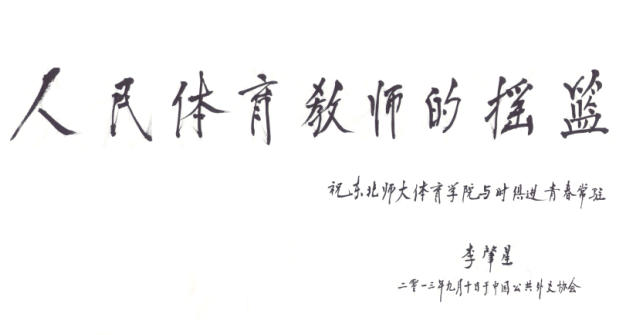 人民体育教师的摇篮
祝东北师大体育学院与时俱进青春常驻
李肇星
二零一三年九月十日于中国公共外交协会